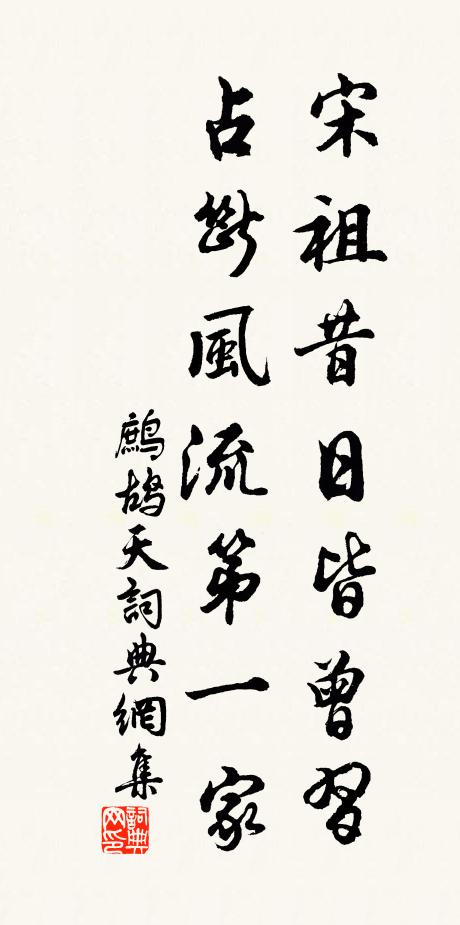 宋祖昔日皆曾習
占斷風流第一家
鷓鴣天詞典網集
詞典网印